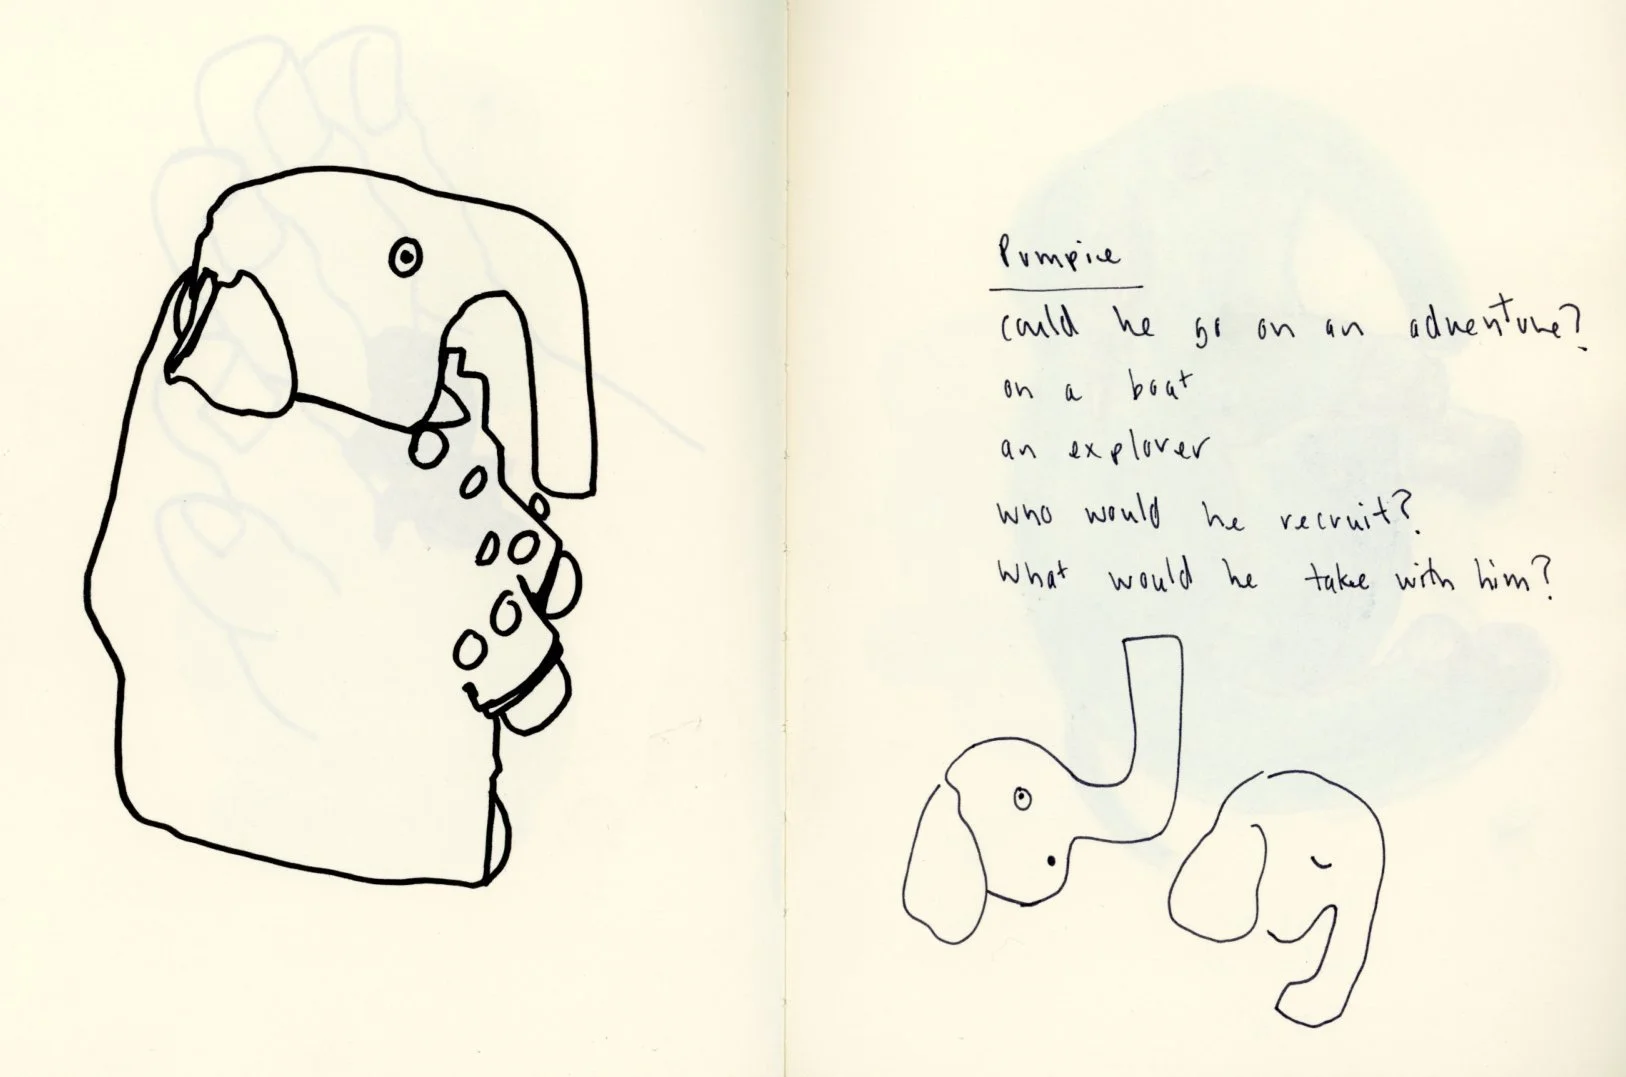 Pumpice
could he go on an adventure?
on a boat
an explorer
who would he recruit?
What would he take with him?